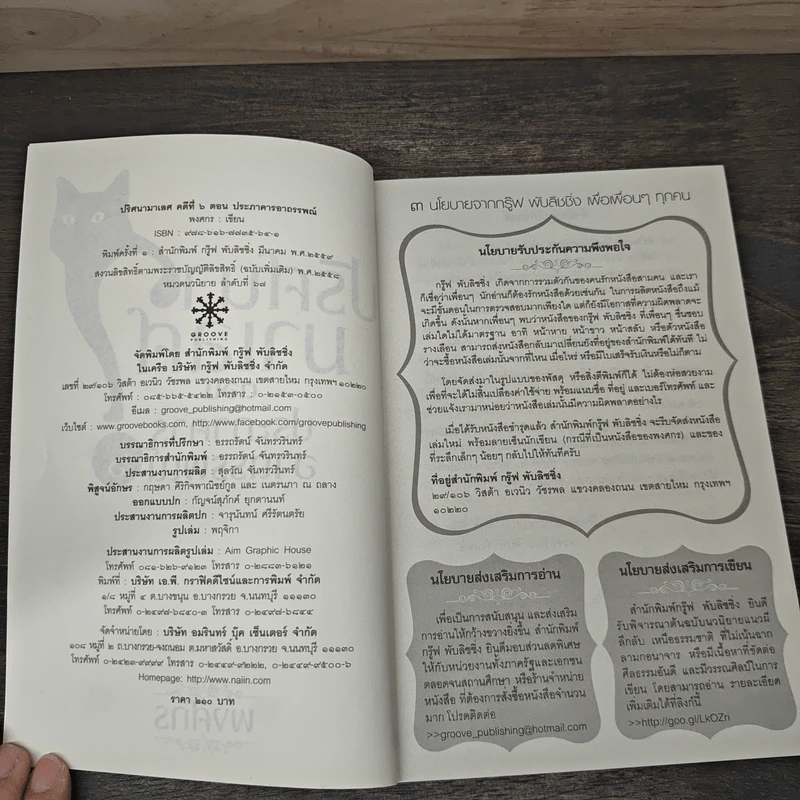 ปริศนามาเลศ คดีที่ ๖ ตอน ประภาคารอาถรรพณ์
พงศกร : เขียน
ISBN : ๙๗๘-๖๑๖-๗๗๓๕-๖๔-๑
พิมพ์ครั้งที่ ๑ : สำนักพิมพ์ กรู๊ฟ พับลิชชิ่ง มีนาคม พ.ศ.๒๕๕๙
สงวนลิขสิทธิ์ตามพระราชบัญญัติลิขสิทธิ์ (ฉบับเพิ่มเติม) พ.ศ.๒๕๕๘
หมวดนวนิยาย ลำดับที่ ๖๗
GROOVE
PUBLISHING
จัดพิมพ์โดย สำนักพิมพ์ กรู๊ฟ พับลิชชิ่ง
ในเครือ บริษัท กรู๊ฟ พับลิชชิ่ง จำกัด
เลขที่ ๒๙/๑๐๖ วิสต้า อเวนิว วัชรพล แขวงคลองถนน เขตสายไหม กรุงเทพฯ ๑๐๒๒๐
โทรศัพท์ : ๐๘๕-๖๖๕-๕๔๒๒ โทรสาร : ๐-๒๑๕๓-๐๕๐๐
อีเมล : groove_publishing@hotmail.com
เว็บไซต์ : www.groovebooks.com, http://www.facebook.com/groovepublishing
บรรณาธิการที่ปรึกษา : อรรถรัตน์ จันทรวรินทร์
บรรณาธิการสำนักพิมพ์ : อรรถรัตน์ จันทรวรินทร์
ประสานงานการผลิต : สุลวัณ จันทรวรินทร์
พิสูจน์อักษร : กฤษดา ศิริกิจพาณิชย์กูล และ เนตรนภา ณ ถลาง
ออกแบบปก : กัญจน์สุภักค์ ยุกตานนท์
ประสานงานการผลิตปก : จารุนันทน์ ศรีรัตนตรัย
รูปเล่ม : พฤจิกา
ประสานงานการผลิตรูปเล่ม : Aim Graphic House
โทรศัพท์ ๐๘๑-๖๒๖-๙๑๒๓ โทรสาร ๐-๒๘๘๓-๖๑๒๑
พิมพ์ที่ : บริษัท เอ.พี. กราฟิคดีไซน์และการพิมพ์ จำกัด
๑/๘ หมู่ที่ ๔ ต.บางขนุน อ.บางกรวย จ.นนทบุรี ๑๑๑๓๐
โทรศัพท์ ๐-๒๔๙๗-๖๘๔๐-๓ โทรสาร ๐-๒๔๙๗-๖๘๔๔
จัดจำหน่ายโดย : บริษัท อมรินทร์ บุ๊ค เซ็นเตอร์ จำกัด
๑๐๘ หมู่ที่ ๒ ถ.บางกรวย-จงถนอม ต.มหาสวัสดิ์ อ.บางกรวย จ.นนทบุรี ๑๑๑๓๐
โทรศัพท์ ๐-๒๔๒๓-๙๙๙๙ โทรสาร ๐-๒๔๔๙-๙๒๒๒, ๐-๒๔๔๙-๙๕๐๐-๖
Homepage: http://www.naiin.com
ราคา ๒๑๐ บาท
๓ นโยบายจากกรู๊ฟ พับลิชชิ่ง เพื่อเพื่อนๆ ทุกคน
นโยบายรับประกันความพึงพอใจ
กรู๊ฟ พับลิชชิ่ง เกิดจากการรวมตัวกันของคนรักหนังสือสามคน และเรา
ก็เชื่อว่าเพื่อนๆ นักอ่านก็ต้องรักหนังสือด้วยเช่นกัน ในการผลิตหนังสือถึงแม้
จะมีขั้นตอนในการตรวจสอบมากเพียงใด แต่ก็ยังมีโอกาสที่ความผิดพลาดจะ
เกิดขึ้น ดังนั้นหากเพื่อนๆ พบว่าหนังสือของกรู๊ฟ พับลิชชิ่ง ที่เพื่อนๆ ชื่นชอบ
เล่มใดไม่ได้มาตรฐาน อาทิ หน้าหาย หน้าขาว หน้าสลับ หรือตัวหนังสือ
รางเลือน สามารถส่งหนังสือกลับมาเปลี่ยนยังที่อยู่ของสำนักพิมพ์ได้ทันที ไม่
ว่าจะซื้อหนังสือเล่มนั้นจากที่ไหน เมื่อไหร่ หรือมีใบเสร็จรับเงินหรือไม่ก็ตาม
โดยจัดส่งมาในรูปแบบของพัสดุ หรือสิ่งตีพิมพ์ก็ได้ ไม่ต้องห่อสวยงาม
เพื่อที่จะได้ไม่สิ้นเปลืองค่าใช้จ่าย พร้อมแนบชื่อ ที่อยู่ และเบอร์โทรศัพท์ และ
ช่วยแจ้งเรามาหน่อยว่าหนังสือเล่มนั้นมีความผิดพลาดอย่างไร
เมื่อได้รับหนังสือชำรุดแล้ว สำนักพิมพ์กรู๊ฟ พับลิชชิ่ง จะรีบจัดส่งหนังสือ
เล่มใหม่ พร้อมลายเซ็นนักเขียน (กรณีที่เป็นหนังสือของพงศกร) และของ
ที่ระลึกเล็กๆ น้อยๆ กลับไปให้ทันทีครับ
ที่อยู่สำนักพิมพ์ กรู๊ฟ พับลิชชิ่ง
๒๙/๑๐๖ วิสต้า อเวนิว วัชรพล แขวงคลองถนน เขตสายไหม กรุงเทพฯ
๑๐๒๒๐
นโยบายส่งเสริมการอ่าน
เพื่อเป็นการสนับสนุน และส่งเสริม
การอ่านให้กว้างขวางยิ่งขึ้น สำนักพิมพ์
กรู๊ฟ พับลิชชิ่ง ยินดีมอบส่วนลดพิเศษ
ให้กับหน่วยงานทั้งภาครัฐและเอกชน
ตลอดจนสถานศึกษา หรือร้านจำหน่าย
หนังสือ ที่ต้องการสั่งซื้อหนังสือจำนวน
มาก โปรดติดต่อ
>>groove_publishing@hotmail.com
นโยบายส่งเสริมการเขียน
สำนักพิมพ์กรู๊ฟ พับลิชชิ่ง ยินดี
รับพิจารณาต้นฉบับนวนิยายแนวผี
ลึกลับ เหนือธรรมชาติ ที่ไม่เน้นฉาก
ลามกอนาจาร หรือมีเนื้อหาที่ขัดต่อ
ศีลธรรมอันดี และมีวรรณศิลป์ในการ
เขียน โดยสามารถอ่าน รายละเอียด
เพิ่มเติมได้ที่ลิงก์นี้
>>http://goo.gl/LkOZri
พงศกร